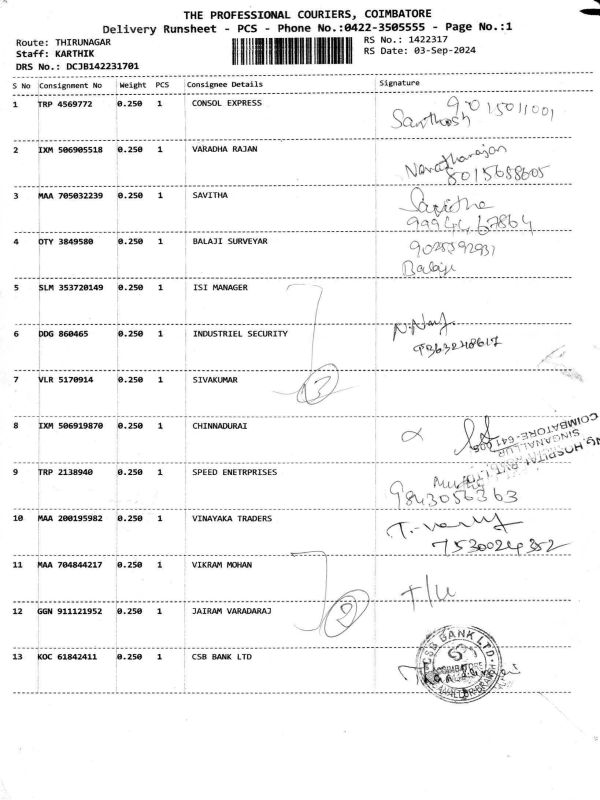 THE PROFESSIONAL COURIERS, COIMBATORE
Delivery Runsheet - PCS - Phone No.:0422-3505555 - Page No.:1
Route: THIRUNAGAR
Staff: KARTHIK
DRS No.: DCJB142231701
RS No.: 1422317
RS Date: 03-Sep-2024
S No Consignment No Weight PCS Consignee Details Signature
1 TRP 4569772 0.250 1 CONSOL EXPRESS
Santhosh
2 IXM 506905518 0.250 1 VARADHA RAJAN
8015688605
3 MAA 705032239 0.250 1 SAVITHA
Savitha
99944 67864
4 OTY 3849580 0.250 1 BALAJI SURVEYAR
Balaji
5 SLM 353720149 0.250 1 ISI MANAGER
6 DDG 860465 0.250 1 INDUSTRIEL SECURITY
7 VLR 5170914 0.250 1 SIVAKUMAR
3
8 IXM 506919870 0.250 1 CHINNADURAI
HOSPITAL
SINGANALLUR
COIMBATORE-641 005
9 TRP 2138940 0.250 1 SPEED ENETRPRISES
9843056363
10 MAA 200195982 0.250 1 VINAYAKA TRADERS
7530024352
11 MAA 704844217 0.250 1 VIKRAM MOHAN
12 GGN 911121952 0.250 1 JAIRAM VARADARAJ
2
13 KOC 61842411 0.250 1 CSB BANK LTD
CSB BANK LTD